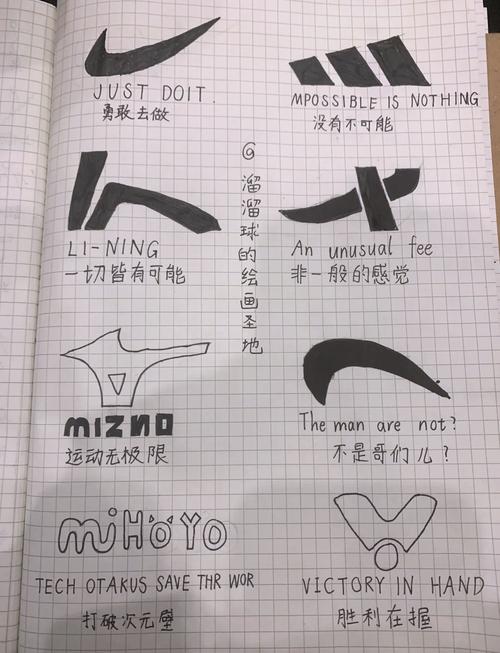 JUST DOIT.
勇敢去做
MPOSSIBLE IS NOTHING
没有不可能
@溜溜球的绘画圣地
LI-NING
一切皆有可能
An unusual fee
非一般的感觉
MIZNO
运动无极限
The man are not?
不是哥们儿?
miHoYo
TECH OTAKUS SAVE THR WOR
打破次元壁
VICTORY IN HAND
胜利在握